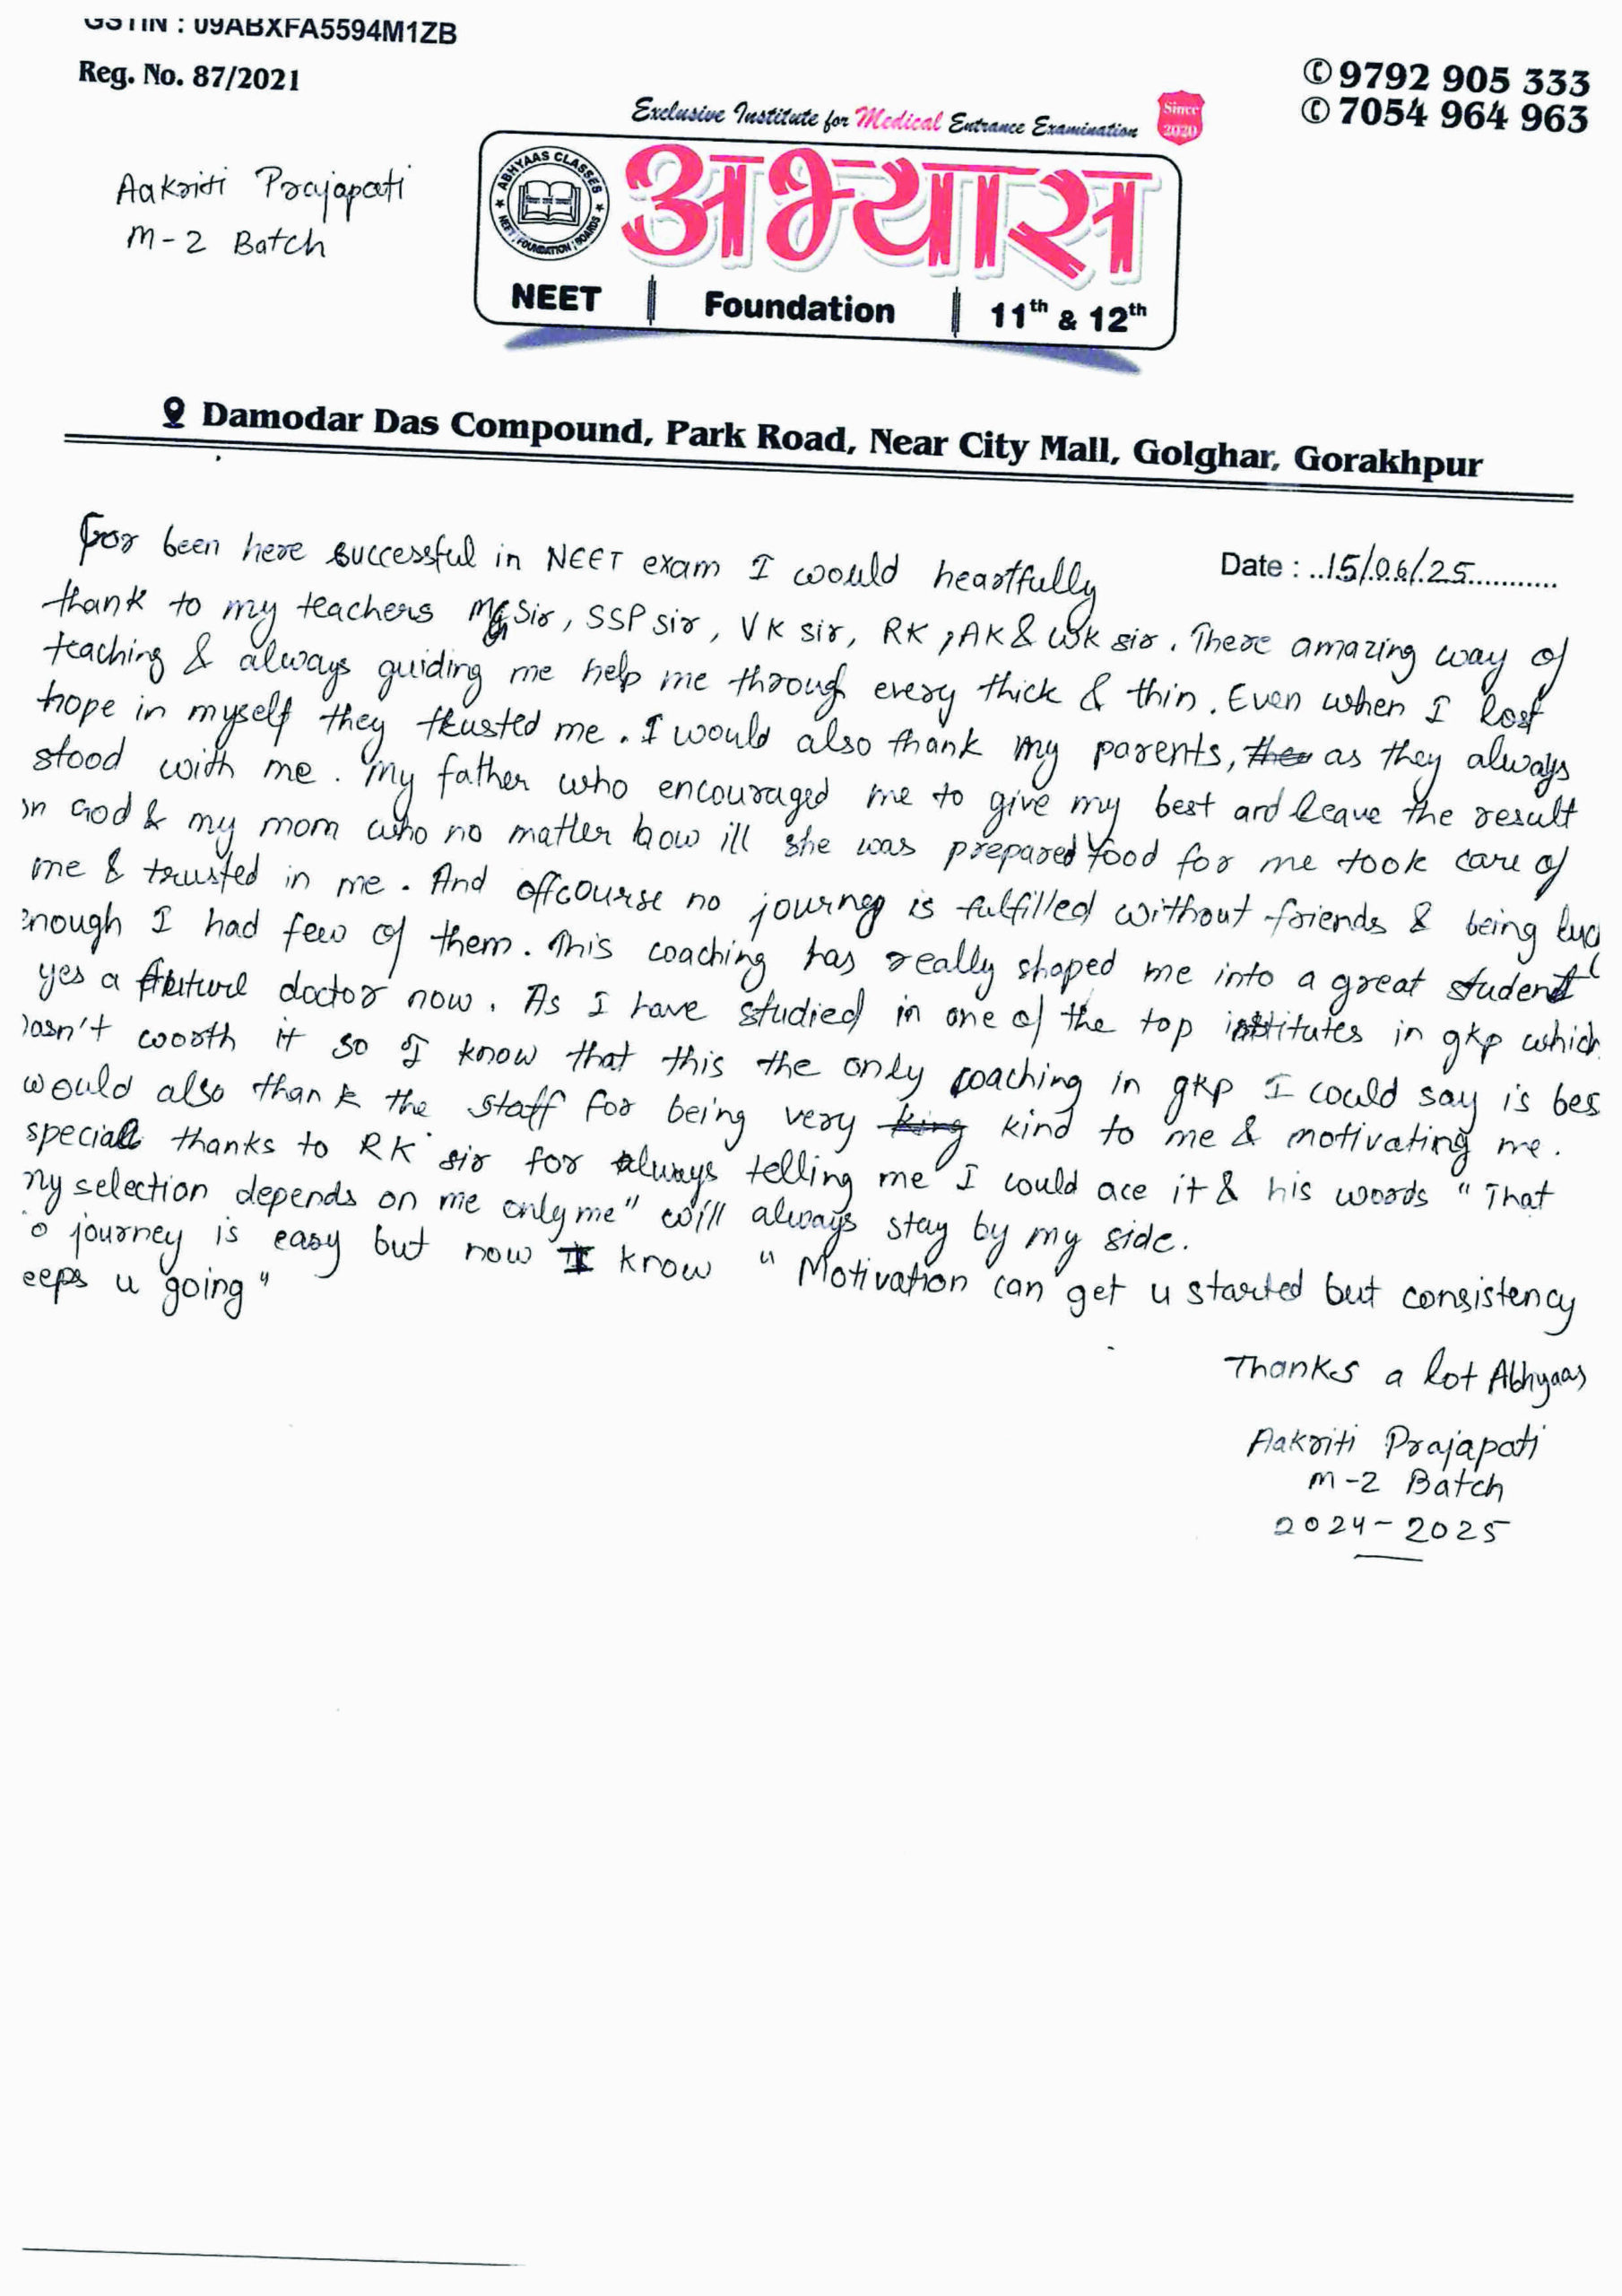 GSTIN : 09ABXFA5594M1ZB
Reg. No. 87/2021
9792 905 333
7054 964 963
Exclusive Institute for Medical Entrance Examination
Since 2020
Aakriti Prajapati
M-2 Batch
ABHYAAS CLASSES
NEET | FOUNDATION | BOARDS
अभ्यास
NEET | Foundation | 11th & 12th
Damodar Das Compound, Park Road, Near City Mall, Golghar, Gorakhpur
Date : 15/06/25
For been here successful in NEET exam I would heartfully
thank to my teachers MG sir, SSP sir, VK sir, RK, AK & sir. There amazing way of
teaching & always guiding me help me through every thick & thin. Even when I lost
hope in myself they trusted me. I would also thank my parents, as they always
stood with me. My father who encouraged me to give my best and leave the result
in God & my mom who no matter how ill she was prepared food for me took care of
me & trusted in me. And offcourse no journey is fulfilled without friends & being luc
enough I had few of them. This coaching has really shaped me into a great student
yes a future doctor now. As I have studied in one of the top institutes in gkp which
wasn't worth it so I know that this the only coaching in gkp I could say is bes
would also thank the staff for being very king kind to me & motivating me.
special thanks to RK sir for always telling me I could ace it & his words "That
my selection depends on me only me" will always stay by my side.
o journey is easy but now I know "Motivation can get u started but consistency
eeps u going"
Thanks a lot Abhyaas
Aakriti Prajapati
M-2 Batch
2024-2025